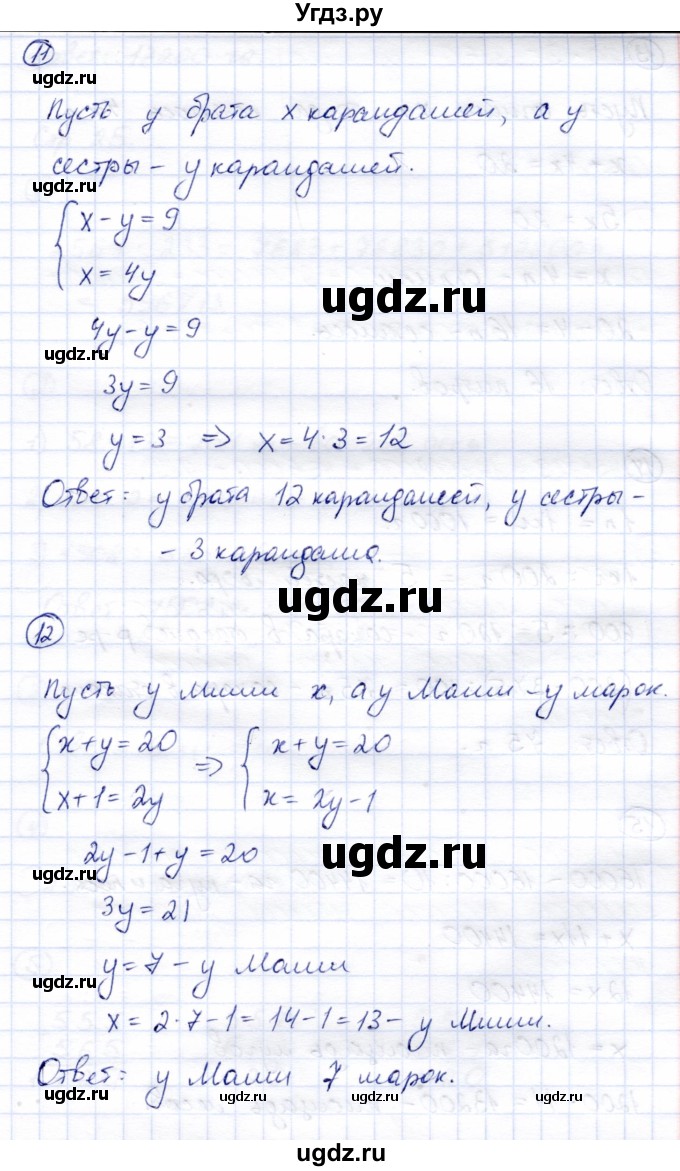 Угдз.ру
11
ugdz.ru
Пусть у брата x карандашей, а у
сестры – у карандашей.
ugdz.ru
{ x – y = 9
x = 4y
ugdz.ru
4y – y = 9
ugdz.ru
3y = 9
y = 3 => x = 4 · 3 = 12
ugdz.ru
Ответ: у брата 12 карандашей, у сестры –
– 3 карандаша.
ugdz.ru
ugdz.ru
12
Пусть у Миши x, а у Маши – y марок.
{ x + y = 20 => { x + y = 20
x + 1 = 2y x = 2y – 1
2y – 1 + y = 20
ugdz.ru
ugdz.ru
3y = 21
y = 7 – у Маши
ugdz.ru
x = 2 · 7 – 1 = 14 – 1 = 13 – у Миши.
Ответ: у Маши 7 марок.
ugdz.ru ugdz.ru ugdz.ru ugdz.ru
ugdz.ru